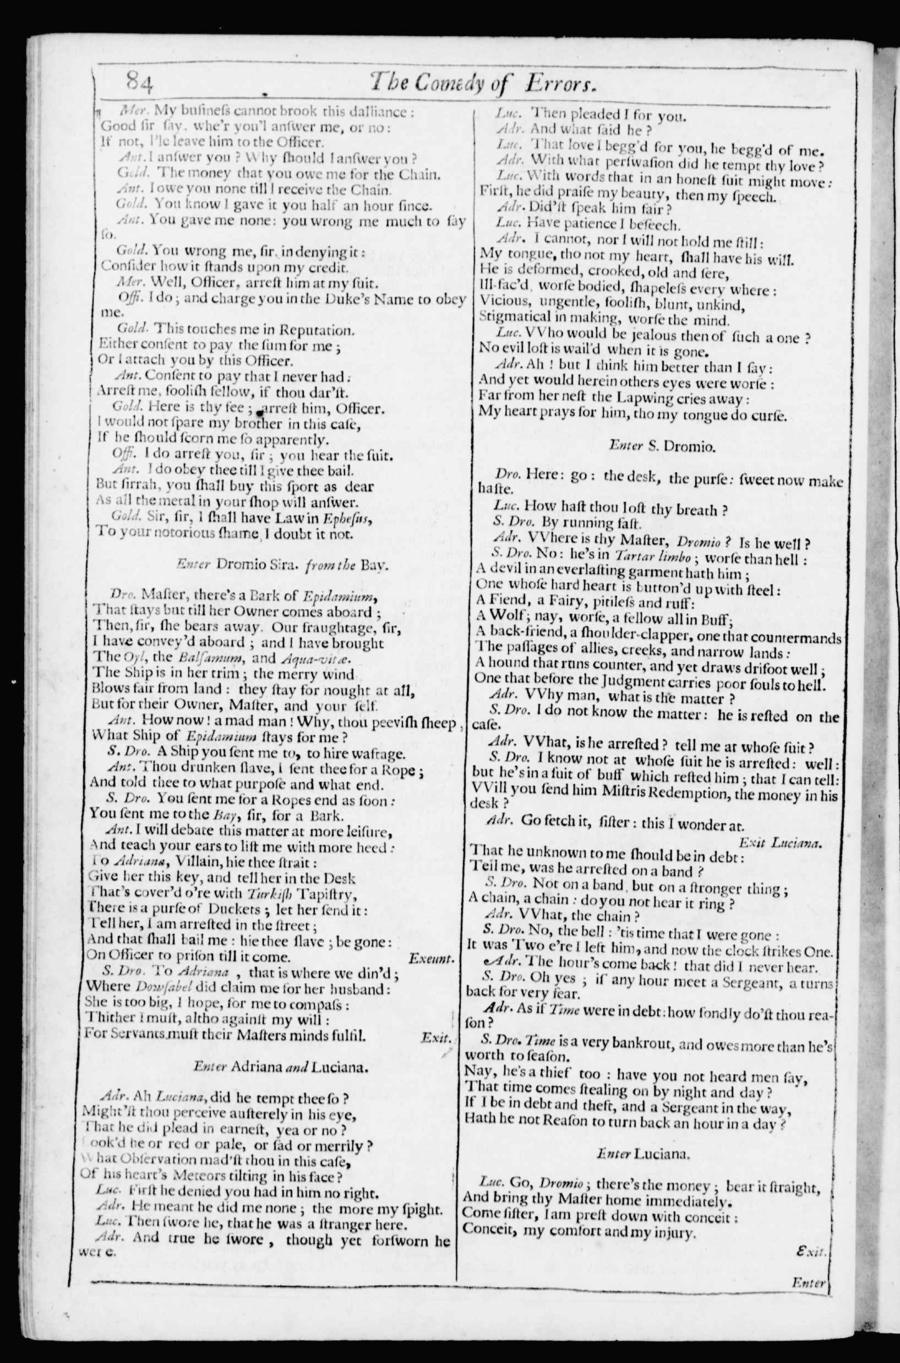 84
The Comedy of Errors.
Mer. My buſineſs cannot brook this dalliance :
Good ſir ſay, whe'r you'l anſwer me, or no :
If not, I'le leave him to the Officer.
Ant. I anſwer you ? Why ſhould I anſwer you ?
Gold. The money that you owe me for the Chain.
Ant. I owe you none till I receive the Chain.
Gold. You know I gave it you half an hour ſince.
Ant. You gave me none: you wrong me much to ſay
ſo.
Gold. You wrong me, ſir, in denying it :
Conſider how it ſtands upon my credit.
Mer. Well, Officer, arreſt him at my ſuit.
Offi. I do ; and charge you in the Duke's Name to obey
me.
Gold. This touches me in Reputation.
Either conſent to pay the ſum for me ;
Or I attach you by this Officer.
Ant. Conſent to pay that I never had :
Arreſt me, fooliſh fellow, if thou dar'ſt.
Gold. Here is thy fee ; arreſt him, Officer.
I would not ſpare my brother in this caſe,
If he ſhould ſcorn me ſo apparently.
Off. I do arreſt you, ſir ; you hear the ſuit.
Ant. I do obey thee till I give thee bail.
But ſirrah, you ſhall buy this ſport as dear
As all the metal in your ſhop will anſwer.
Gold. Sir, ſir, I ſhall have Law in Epheſus,
To your notorious ſhame, I doubt it not.
Enter Dromio Sira. from the Bay.
Dro. Maſter, there's a Bark of Epidamium,
That ſtays but till her Owner comes aboard ;
Then, ſir, ſhe bears away. Our fraughtage, ſir,
I have convey'd aboard ; and I have brought
The Oyl, the Balſamum, and Aqua-vitæ.
The Ship is in her trim ; the merry wind
Blows fair from land : they ſtay for nought at all,
But for their Owner, Maſter, and your ſelf.
Ant. How now ! a mad man ! Why, thou peeviſh ſheep,
What Ship of Epidamium ſtays for me ?
S. Dro. A Ship you ſent me to, to hire waftage.
Ant. Thou drunken ſlave, I ſent thee for a Rope ;
And told thee to what purpoſe and what end.
S. Dro. You ſent me for a Ropes end as ſoon :
You ſent me to the Bay, ſir, for a Bark.
Ant. I will debate this matter at more leiſure,
And teach your ears to liſt me with more heed :
To Adriana, Villain, hie thee ſtrait :
Give her this key, and tell her in the Desk
That's cover'd o're with Turkiſh Tapiſtry,
There is a purſe of Duckets ; let her ſend it :
Tell her, I am arreſted in the ſtreet ;
And that ſhall bail me : hie thee ſlave ; be gone :
On Officer to priſon till it come. Exeunt.
S. Dro. To Adriana , that is where we din'd ;
Where Dowſabel did claim me for her husband :
She is too big, I hope, for me to compaſs :
Thither I muſt, altho againſt my will :
For Servants muſt their Maſters minds fulfil. Exit.
Enter Adriana and Luciana.
Adr. Ah Luciana, did he tempt thee ſo ?
Might'ſt thou perceive auſterely in his eye,
That he did plead in earneſt, yea or no ?
Look'd he or red or pale, or ſad or merrily ?
What Obſervation mad'ſt thou in this caſe,
Of his heart's Meteors tilting in his face ?
Luc. Firſt he denied you had in him no right.
Adr. He meant he did me none ; the more my ſpight.
Luc. Then ſwore he, that he was a ſtranger here.
Adr. And true he ſwore , though yet forſworn he
were.
Luc. Then pleaded I for you.
Adr. And what ſaid he ?
Luc. That love I begg'd for you, he begg'd of me.
Adr. With what perſwaſion did he tempt thy love ?
Luc. With words that in an honeſt ſuit might move :
Firſt, he did praiſe my beauty, then my ſpeech.
Adr. Did'ſt ſpeak him fair ?
Luc. Have patience I beſeech.
Adr. I cannot, nor I will not hold me ſtill :
My tongue, tho not my heart, ſhall have his will.
He is deformed, crooked, old and ſere,
Ill-fac'd, worſe bodied, ſhapeleſs every where :
Vicious, ungentle, fooliſh, blunt, unkind,
Stigmatical in making, worſe the mind.
Luc. VVho would be jealous then of ſuch a one ?
No evil loſt is wail'd when it is gone.
Adr. Ah ! but I think him better than I ſay :
And yet would herein others eyes were worſe :
Far from her neſt the Lapwing cries away :
My heart prays for him, tho my tongue do curſe.
Enter S. Dromio.
Dro. Here : go : the desk, the purſe : ſweet now make
haſte.
Luc. How haſt thou loſt thy breath ?
S. Dro. By running faſt.
Adr. VVhere is thy Maſter, Dromio ? Is he well ?
S. Dro. No : he's in Tartar limbo ; worſe than hell :
A devil in an everlaſting garment hath him ;
One whoſe hard heart is button'd up with ſteel :
A Fiend, a Fairy, pitileſs and ruff:
A Wolf ; nay, worſe, a fellow all in Buff ;
A back-friend, a ſhoulder-clapper, one that countermands
The paſſages of allies, creeks, and narrow lands :
A hound that runs counter, and yet draws drifoot well ;
One that before the Judgment carries poor ſouls to hell.
Adr. VVhy man, what is the matter ?
S. Dro. I do not know the matter : he is reſted on the
caſe.
Adr. VVhat, is he arreſted ? tell me at whoſe ſuit ?
S. Dro. I know not at whoſe ſuit he is arreſted : well :
but he's in a ſuit of buff which reſted him ; that I can tell :
VVill you ſend him Miſtris Redemption, the money in his
desk ?
Adr. Go fetch it, ſiſter : this I wonder at.
Exit Luciana.
That he unknown to me ſhould be in debt :
Tell me, was he arreſted on a band ?
S. Dro. Not on a band, but on a ſtronger thing ;
A chain, a chain : do you not hear it ring ?
Adr. VVhat, the chain ?
S. Dro. No, the bell : 'tis time that I were gone :
It was Two e're I left him, and now the clock ſtrikes One.
Adr. The hour's come back ! that did I never hear.
S. Dro. Oh yes ; if any hour meet a Sergeant, a turns
back for very fear.
Adr. As if Time were in debt : how fondly do'ſt thou rea-
ſon ?
S. Dro. Time is a very bankrout, and owes more than he's
worth to ſeaſon.
Nay, he's a thief too : have you not heard men ſay,
That time comes ſtealing on by night and day ?
If I be in debt and theft, and a Sergeant in the way,
Hath he not Reaſon to turn back an hour in a day ?
Enter Luciana.
Luc. Go, Dromio ; there's the money ; bear it ſtraight,
And bring thy Maſter home immediately.
Come ſiſter, I am preſt down with conceit :
Conceit, my comfort and my injury.
Exit.
Enter